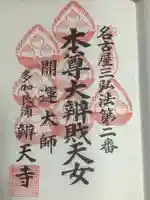 名古屋三弘法第二番
本尊大辨財天女
開運大師
多加良浦
辨天寺